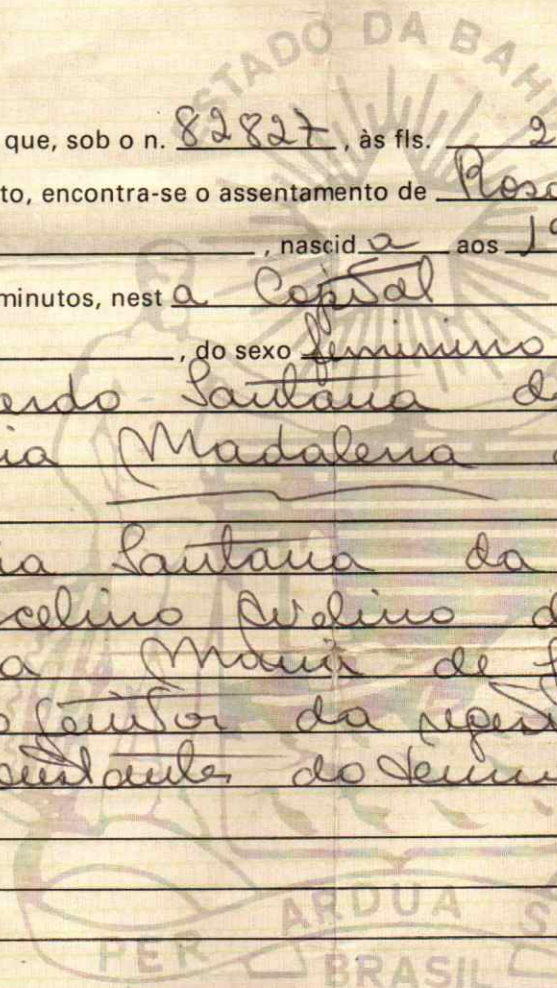 ESTADO DA BAH
que, sob o n. 82827, às fls. 2
to, encontra-se o assentamento de Rosa
, nascida aos 19
minutos, nesta Capital
, do sexo feminino
Santana d
ia Madalena
ia Santana da
celino Avelino d
a Maria de
o Genitor da
do
PER ARDUA S
BRASIL